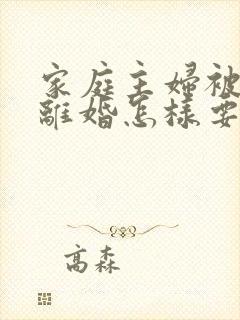 家庭主婦被
離婚怎樣要
高森